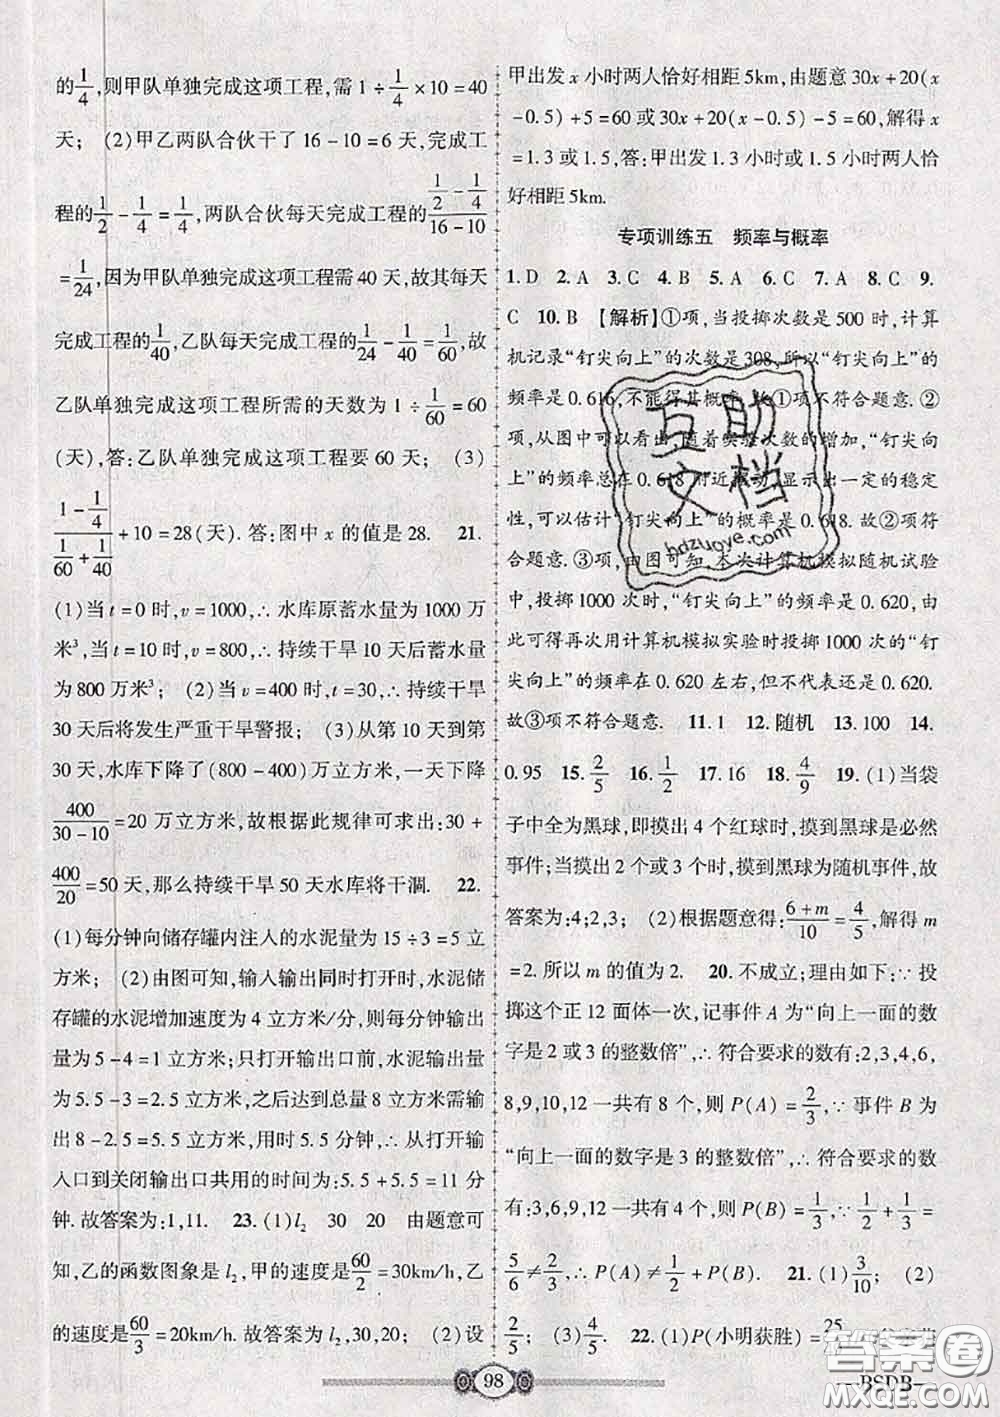 的1/4,则甲队单独完成这项工程,需1÷1/4×10=40
天; (2)甲乙两队合伙干了16-10=6天,完成工
程的1/2-1/4=1/4,两队合伙每天完成工程的(1/2-1/4)/(16-10)
=1/24,因为甲队单独完成这项工程需40天,故其每天
完成工程的1/40,乙队每天完成工程的1/24-1/40=1/60,故
乙队单独完成这项工程所需的天数为1÷1/60=60
(天),答:乙队单独完成这项工程要60天; (3)
(1-1/4)/(1/60+1/40)+10=28(天). 答:图中x的值是28. 21.
(1)当t=0时,v=1000,∴水库原蓄水量为1000万
米³,当t=10时,v=800,∴持续干旱10天后蓄水量
为800万米³; (2)当v=400时,t=30,∴持续干旱
30天后将发生严重干旱警报; (3)从第10天到第
30天,水库下降了(800-400)万立方米,一天下降
400/(30-10)=20万立方米,故根据此规律可求出:30+
400/20=50天,那么持续干旱50天水库将干涸. 22.
(1)每分钟向储存罐内注入的水泥量为15÷3=5立
方米; (2)由图可知,输入输出同时打开时,水泥储
存罐的水泥增加速度为4立方米/分,则每分钟输出
量为5-4=1立方米;只打开输出口前,水泥输出量
为5.5-3=2.5立方米,之后达到总量8立方米需输
出8-2.5=5.5立方米,用时5.5分钟,∴从打开输
入口到关闭输出口共用的时间为:5.5+5.5=11分
钟.故答案为:1,11. 23. (1)l₂ 30 20 由题意可
知,乙的函数图象是l₂,甲的速度是60/2=30km/h,乙
的速度是60/3=20km/h. 故答案为l₂,30,20; (2)设
甲出发x小时两人恰好相距5km,由题意30x+20(x
-0.5)+5=60或30x+20(x-0.5)-5=60,解得x
=1.3或1.5,答:甲出发1.3小时或1.5小时两人恰
好相距5km.
专项训练五 频率与概率
1. D 2. A 3. C 4. B 5. A 6. C 7. A 8. C 9.
C 10. B 【解析】①项,当投掷次数是500时,计算
机记录“钉尖向上”的次数是308,所以“钉尖向上”的
频率是0.616,不能得其概率,故①项不符合题意.②
项,从图中可以看出,随着实验次数的增加,“钉尖向
上”的频率总在0.618附近波动,显示出一定的稳定
性,可以估计“钉尖向上”的概率是0.618. 故②项符
合题意.③项,由图可知,本次计算机模拟随机试验
中,投掷1000次时,“钉尖向上”的频率是0.620,由
此可得再次用计算机模拟实验时投掷1000次的“钉
尖向上”的频率在0.620左右,但不代表还是0.620.
故③项不符合题意. 11. 1 12. 随机 13. 100 14.
0.95 15. 2/5 16. 1/2 17. 16 18. 4/9 19. (1)当袋
子中全为黑球,即摸出4个红球时,摸到黑球是必然
事件;当摸出2个或3个时,摸到黑球为随机事件,故
答案为:4;2,3; (2)根据题意得:(6+m)/10=4/5,解得m
=2. 所以m的值为2. 20. 不成立;理由如下:∵投
掷这个正12面体一次,记事件A为“向上一面的数
字是2或3的整数倍”,∴符合要求的数有:2,3,4,6,
8,9,10,12一共有8个,则P(A)=2/3,∵事件B为
“向上一面的数字是3的整数倍”,∴符合要求的数
有:3,6,9,12一共有4个,则P(B)=1/3,∵1/2+1/3=
5/6≠2/3,∴P(A)≠1/2+P(B). 21. (1)3/10; (2)
2/5; (3)4/5. 22. (1)P(小明获胜)=25/
98
-BSDB-
互助
文档
hdzuoye.com
答案圈
MXQE.COM